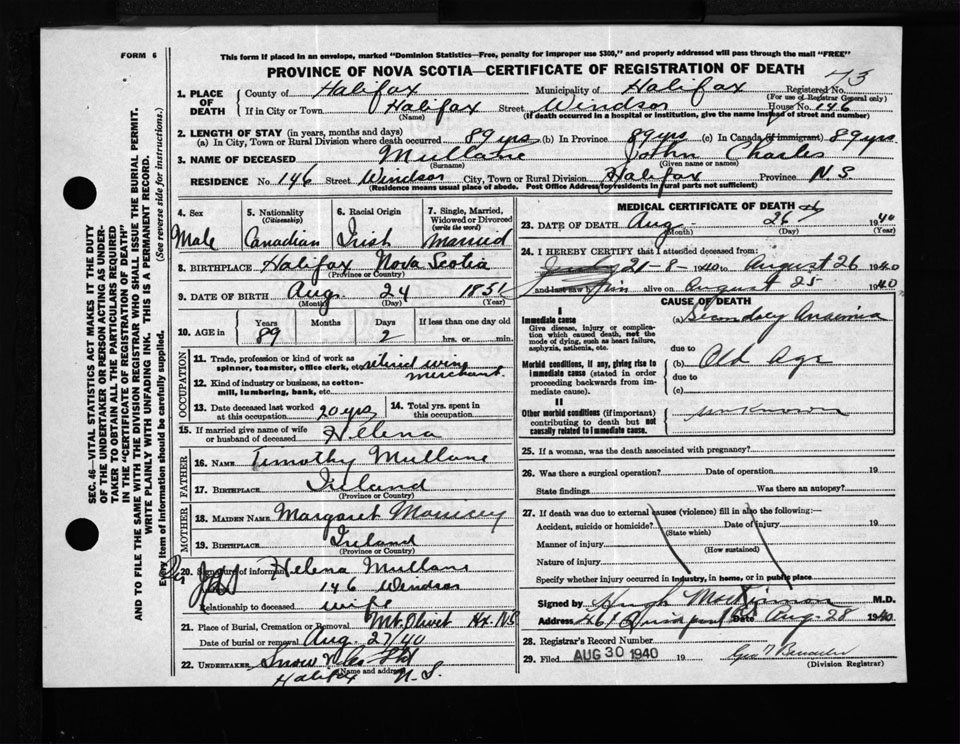 FORM 6
This form if placed in an envelope, marked "Dominion Statistics—Free, penalty for improper use $300," and properly addressed will pass through the mail "FREE"
PROVINCE OF NOVA SCOTIA—CERTIFICATE OF REGISTRATION OF DEATH
73
1. PLACE OF DEATH County of Halifax Municipality of Halifax Registered No. (For use of Registrar General only)
If in City or Town Halifax (Name) Street Windsor House No. 146
(If death occurred in a hospital or institution, give the name instead of street and number)
2. LENGTH OF STAY (in years, months and days)
(a) In City, Town or Rural Division where death occurred 89 yrs (b) In Province 89 yrs (c) In Canada (if immigrant) 89 yrs
3. NAME OF DECEASED Mullane John Charles
(Surname) (Given name or names)
RESIDENCE No. 146 Street Windsor City, Town or Rural Division Halifax Province N.S.
(Residence means usual place of abode. Post Office Address for residents in rural parts not sufficient)
4. Sex Male
5. Nationality (Citizenship) Canadian
6. Racial Origin Irish
7. Single, Married, Widowed or Divorced (write the word) Married
8. BIRTHPLACE Halifax Nova Scotia
(Province or Country)
9. DATE OF BIRTH Aug. 24 1851
(Month) (Day) (Year)
10. AGE in Years 89 Months Days 2 If less than one day old hrs. or min.
OCCUPATION
11. Trade, profession or kind of work as spinner, teamster, office clerk, etc. retired wine merchant
12. Kind of industry or business, as cotton-mill, lumbering, bank, etc.
13. Date deceased last worked at this occupation 20 yrs
14. Total yrs. spent in this occupation
15. If married give name of wife or husband of deceased Helena
FATHER
16. NAME Timothy Mullane
17. BIRTHPLACE Ireland
(Province or Country)
MOTHER
18. MAIDEN NAME Margaret
19. BIRTHPLACE Ireland
(Province or Country)
20. Signature of informant Helena Mullane
146 Windsor
Relationship to deceased wife
21. Place of Burial, Cremation or Removal Mt. Olivet Hx. N.S
Date of burial or removal Aug. 27/40
22. UNDERTAKER Snow
(Name and Address)
Halifax N.S.
MEDICAL CERTIFICATE OF DEATH
23. DATE OF DEATH Aug 26 1940
(Month) (Day) (Year)
24. I HEREBY CERTIFY that I attended deceased from:
21-8-1940 to August 26 1940
and last saw him alive on August 25 1940
CAUSE OF DEATH
I
Immediate cause (a) Secondary Anaemia
Give disease, injury or complication which caused death, not the mode of dying, such as heart failure, asphyxia, asthenia, etc.
due to
Morbid conditions, if any, giving rise to immediate cause (stated in order proceeding backwards from immediate cause).
(b) Old Age
due to
(c)
II
Other morbid conditions (if important) contributing to death but not causally related to immediate cause.
unknown
25. If a woman, was the death associated with pregnancy?
26. Was there a surgical operation? Date of operation 19
State findings Was there an autopsy?
27. If death was due to external causes (violence) fill in also the following:
Accident, suicide or homicide? Date of injury 19
(State which)
Manner of injury
(How sustained)
Nature of injury
Specify whether injury occurred in industry, in home, or in public place
Signed by Hugh MacKinnon M.D.
Address 461 Date Aug-28 1940
28. Registrar's Record Number
29. Filed AUG 30 1940 19
(Division Registrar)
SEC. 46—VITAL STATISTICS ACT MAKES IT THE DUTY
OF THE UNDERTAKER OR PERSON ACTING AS UNDER-
TAKER TO OBTAIN ALL THE PARTICULARS REQUIRED
IN THE "CERTIFICATE OF REGISTRATION OF DEATH"
AND TO FILE THE SAME WITH THE DIVISION REGISTRAR WHO SHALL ISSUE THE BURIAL PERMIT.
WRITE PLAINLY WITH UNFADING INK. THIS IS A PERMANENT RECORD.
Every item of information should be carefully supplied. (See reverse side for instructions.)